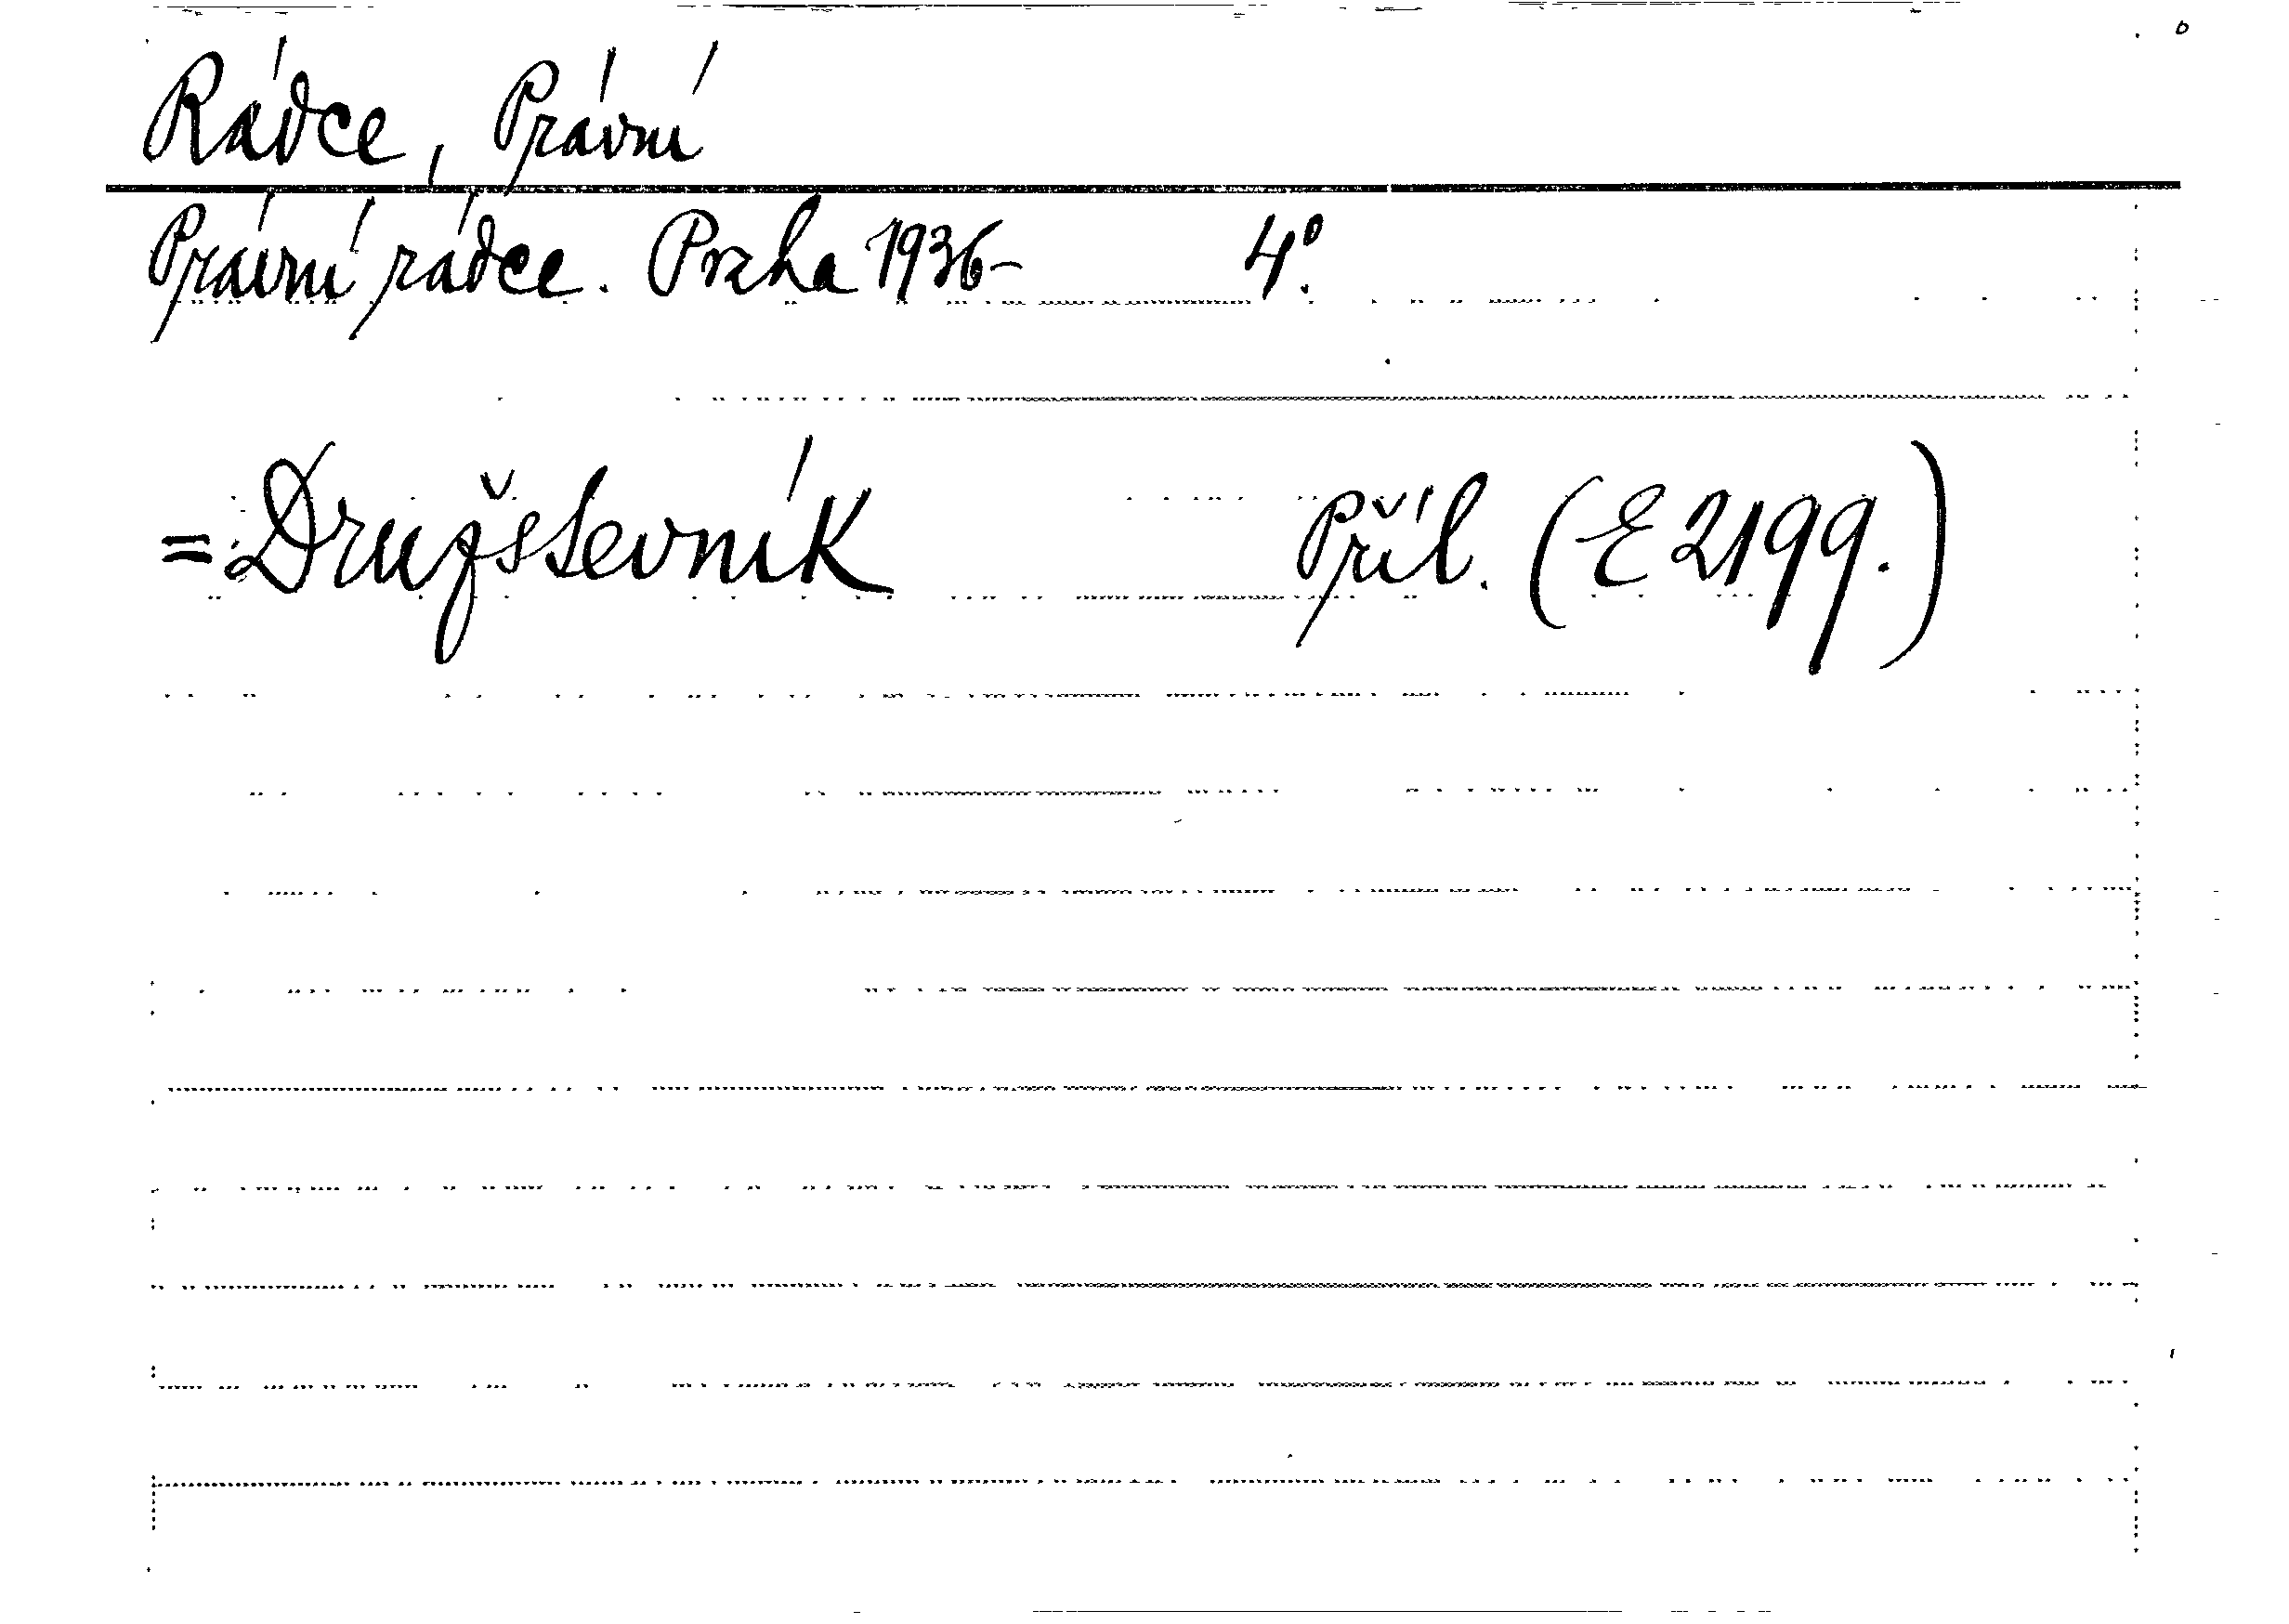 Rádce, Právní
Právní rádce. Praha 1936- 4°.
= Družstevník Příl. (E 2199.)